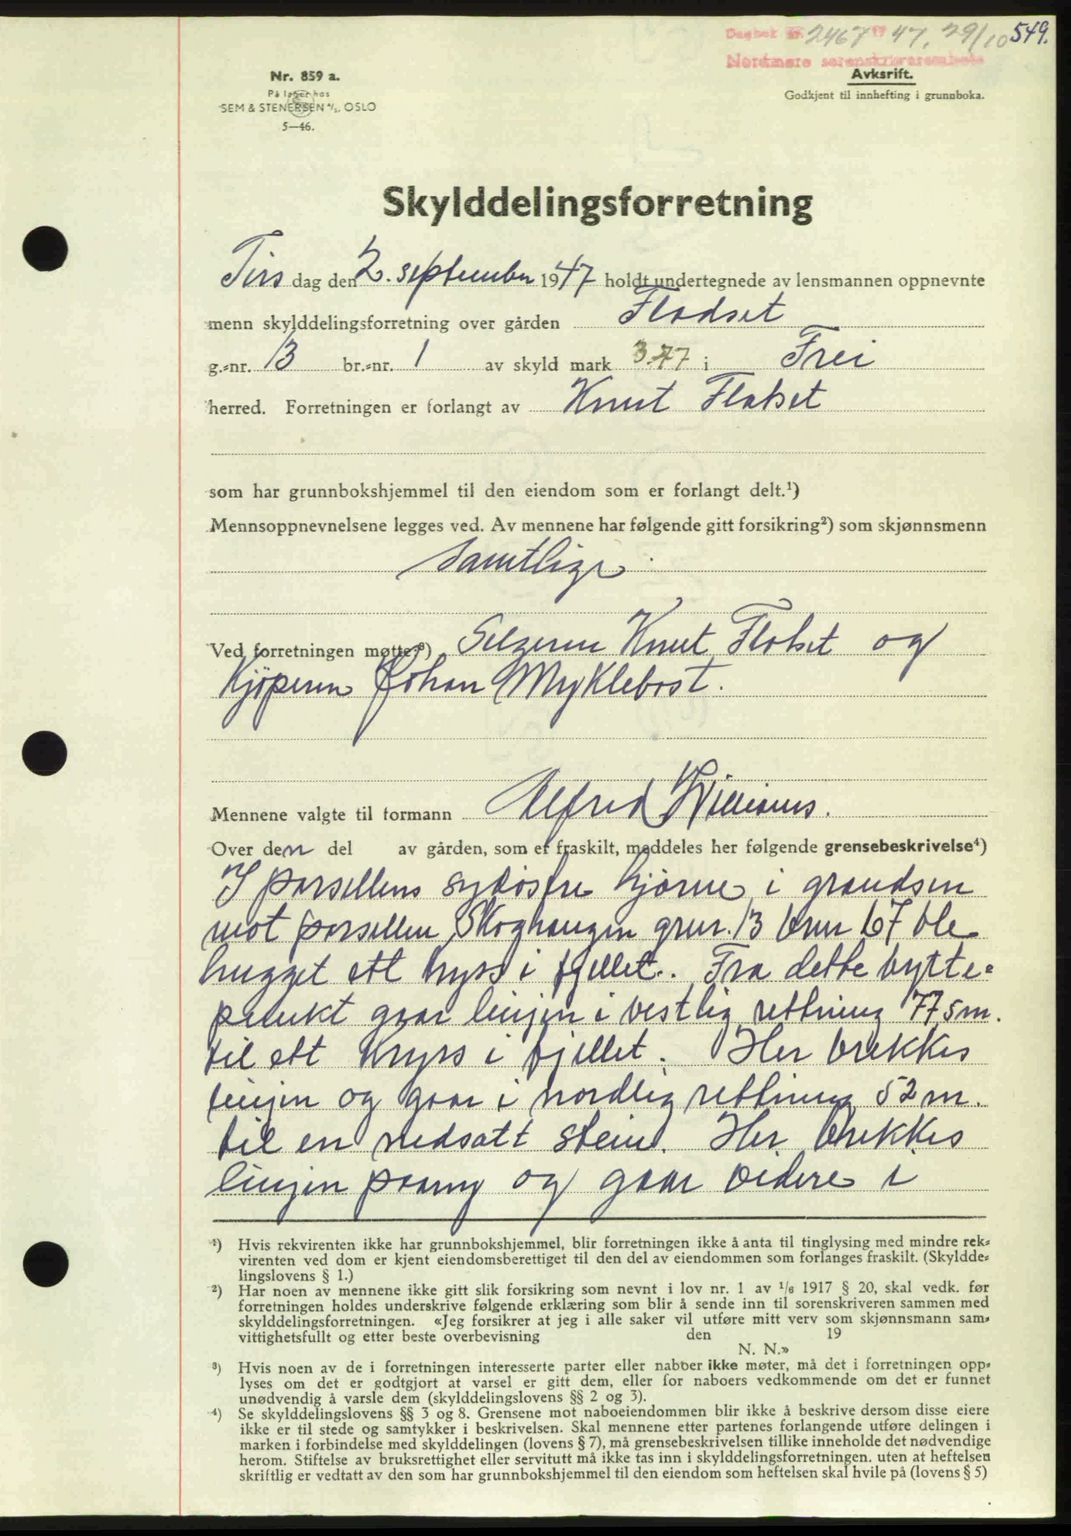 Dagbok nr. 2467 19 47. 29/10 549.
Nordmøre sorenskriverembete
Nr. 859 a.
På lager hos
SEM & STENERSEN A/S, OSLO
5—46.
Avksrift.
Godkjent til innhefting i grunnboka.
Skylddelingsforretning
Tirs dag den 2. september 1947 holdt undertegnede av lensmannen oppnevnte
menn skylddelingsforretning over gården Fladset
g.-nr. 13 br.-nr. 1 av skyld mark 3.77 i Frei
herred. Forretningen er forlangt av Knut Flatset
som har grunnbokshjemmel til den eiendom som er forlangt delt.¹)
Mennsoppnevnelsene legges ved. Av mennene har følgende gitt forsikring²) som skjønnsmenn
Samtlige
Ved forretningen møtte³) Selgeren Knut Flatset og
Kjøperen Johan Myklebost.
Mennene valgte til formann Alfred Williams.
Over den del av gården, som er fraskilt, meddeles her følgende grensebeskrivelse⁴)
I parsellens sydøstre hjørne i grændsen
mot parsellen Skoghaugen grnr. 13 brnr 67 ble
hugget ett kryss i fjellet. Fra dette bytte-
punkt gaar linjen i vestlig rettning 77,5 m.
til ett kryss i fjellet. Her brekkes
linjen og gaar i nordlig rettning 52 m.
til en nedsatt stein. Her brekkes
linjen paany og gaar videre i
¹) Hvis rekvirenten ikke har grunnbokshjemmel, blir forretningen ikke å anta til tinglysing med mindre rek-
virenten ved dom er kjent eiendomsberettiget til den del av eiendommen som forlanges fraskilt. (Skyldde-
lingslovens § 1.)
²) Har noen av mennene ikke gitt slik forsikring som nevnt i lov nr. 1 av 1/6 1917 § 20, skal vedk. før
forretningen holdes underskrive følgende erklæring som blir å sende inn til sorenskriveren sammen med
skylddelingsforretningen. «Jeg forsikrer at jeg i alle saker vil utføre mitt verv som skjønnsmann sam-
vittighetsfullt og etter beste overbevisning den 19
N. N.»
³) Hvis noen av de i forretningen interesserte parter eller naboer ikke møter, må det i forretningen opp-
lyses om det er godtgjort at varsel er gitt dem, eller for naboers vedkommende om det er funnet
unødvendig å varsle dem (skylddelingslovens §§ 2 og 3).
⁴) Se skylddelingslovens §§ 3 og 8. Grensene mot naboeiendommen blir ikke å beskrive dersom disse eiere
ikke er til stede og samtykker i beskrivelsen. Skal mennene etter partenes forlangende utføre delingen i
marken i forbindelse med skylddelingen (lovens § 7), må grensebeskrivelsen tillike inneholde det nødvendige
herom. Stiftelse av bruksrettighet eller servitutt må ikke tas inn i skylddelingsforretningen. uten at heftelsen
skriftlig er vedtatt av den som har grunnbokshjemmel til den eiendom som heftelsen skal hvile på (lovens § 5)